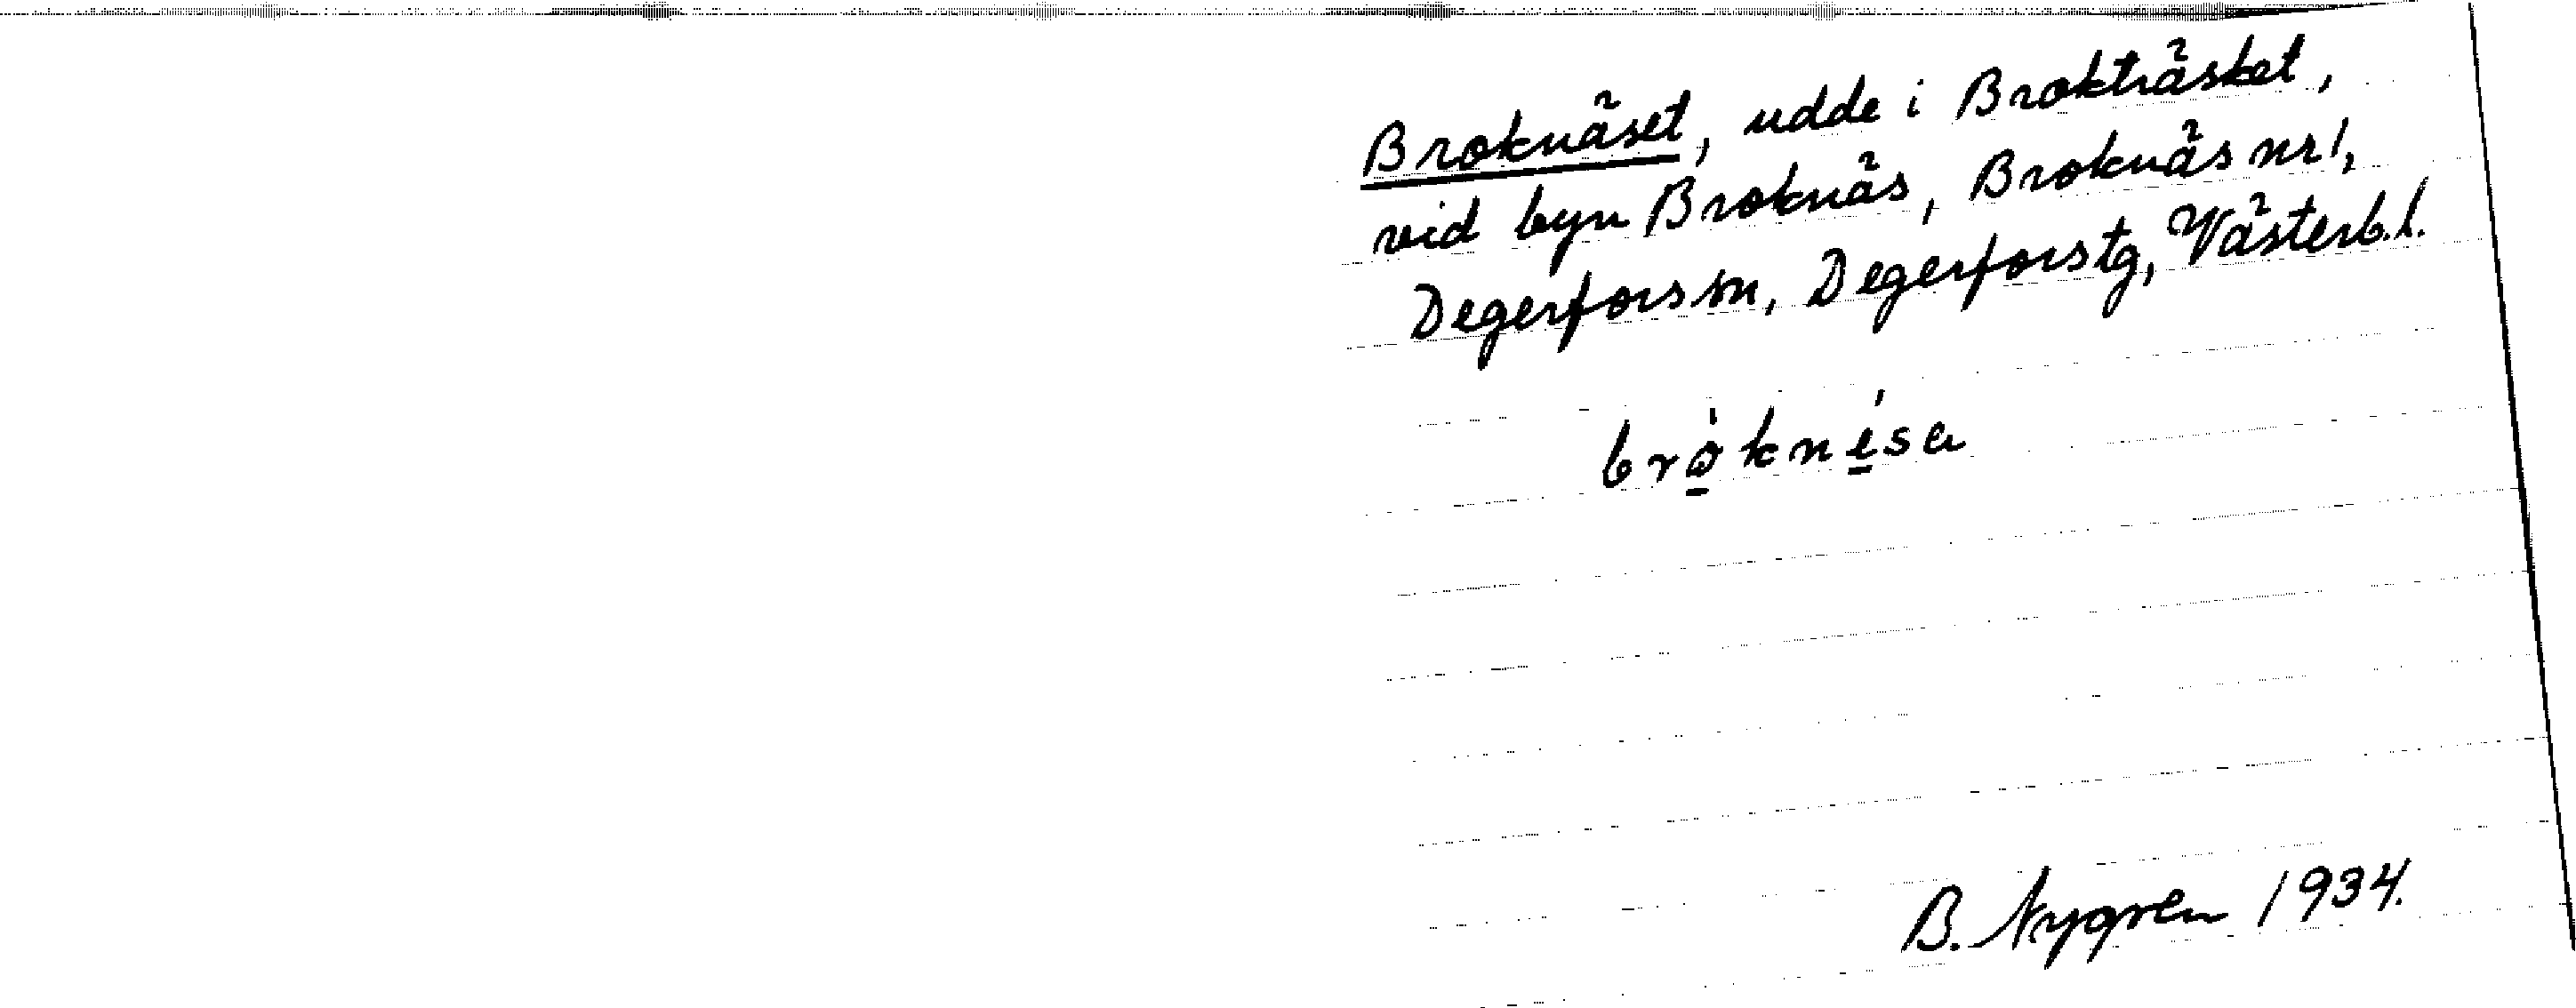 Broknäset, udde i Brokträsket,
vid byn Broknäs, Broknäs nr 1,
Degerfors sn, Degerfors tg, Västerb.l.
bròknésa
B. Nygren 1934.